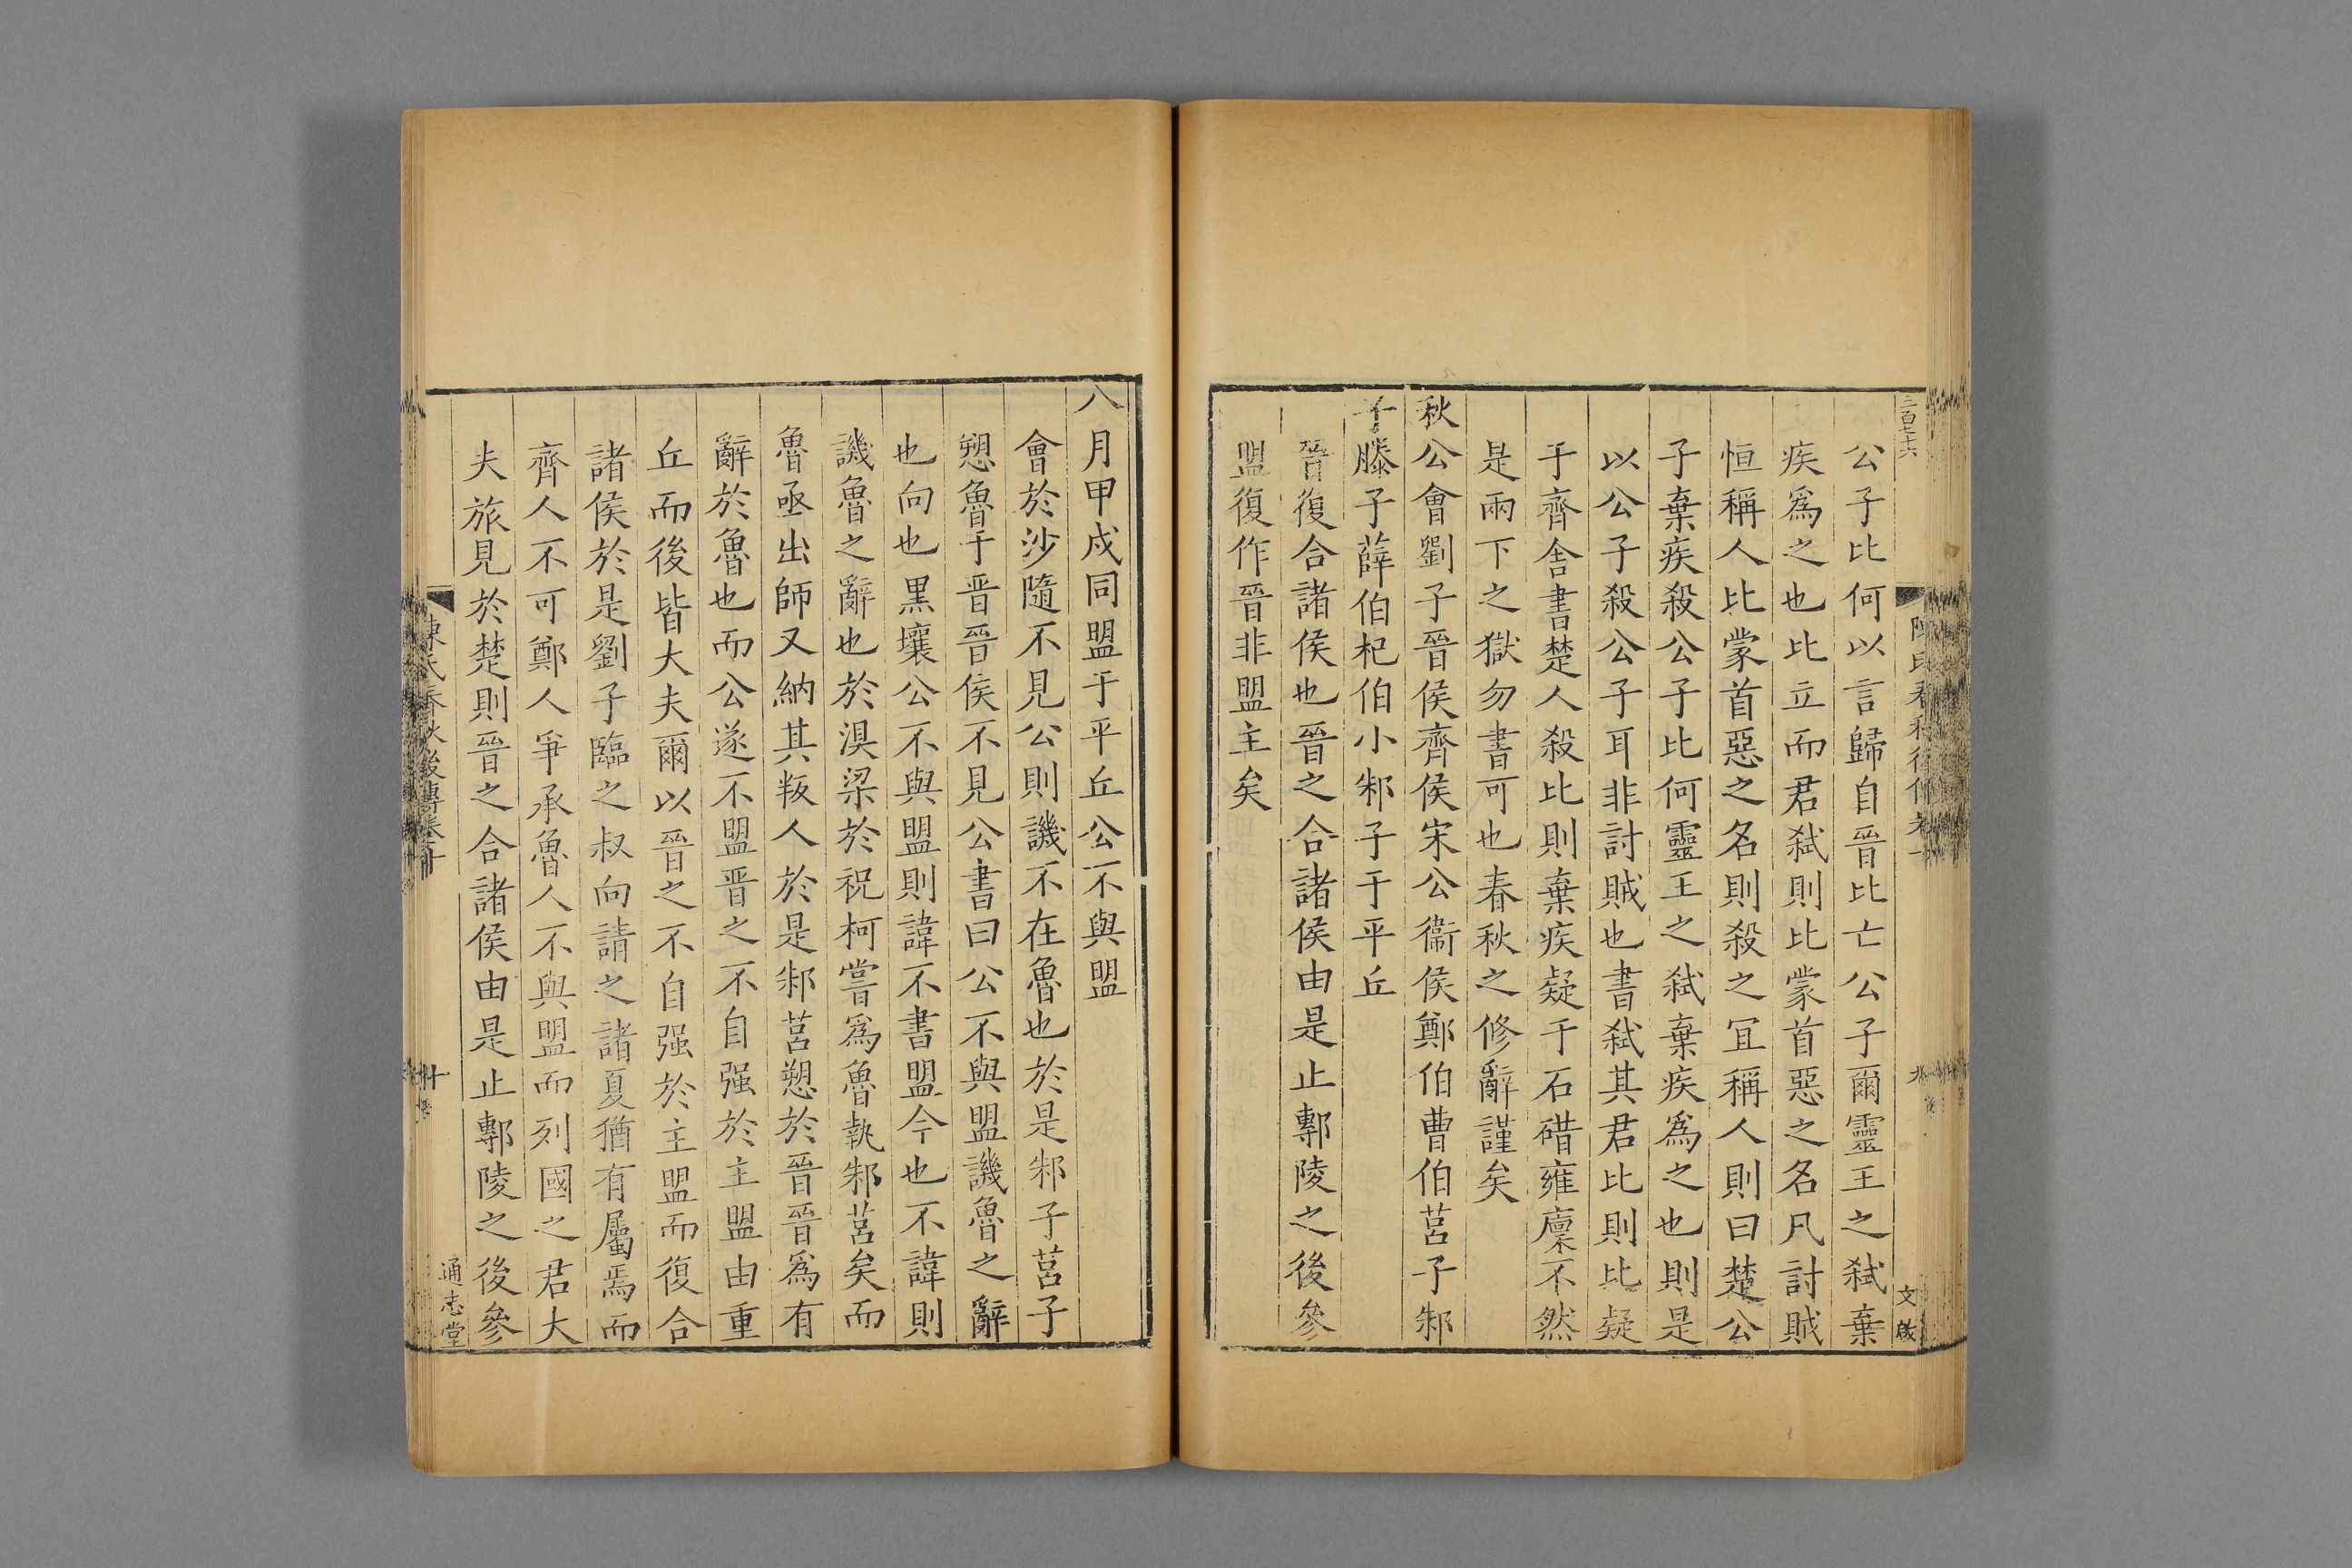 三百七十六
公子比何以言歸自晉比亡公子爾靈王之弑棄
疾爲之也比立而君弑則比蒙首惡之名凡討賊
恒稱人比蒙首惡之名則殺之冝稱人則曰楚公
子棄疾殺公子比何靈王之弑棄疾爲之也則是
以公子殺公子耳非討賊也書弑其君比則比疑
于齊舍書楚人殺比則棄疾疑于石碏雍廩不然
是兩下之獄勿書可也春秋之修辭謹矣
秋公會劉子晉侯齊侯宋公衞侯鄭伯曹伯莒子邾
子滕子薛伯杞伯小邾子于平丘
晉復合諸侯也晉之合諸侯由是止鄟陵之後參
盟復作晉非盟主矣
文啟
八月甲戌同盟于平丘公不與盟
會於沙隨不見公則譏不在魯也於是邾子莒子
愬魯于晉晉侯不見公書曰公不與盟譏魯之辭
也向也黑壤公不與盟則諱不書盟今也不諱則
譏魯之辭也於湨梁於祝柯嘗爲魯執邾莒矣而
魯亟出師又納其叛人於是邾莒愬於晉晉爲有
辭於魯也而公遂不盟晋之不自强於主盟由重
丘而後皆大夫爾以晉之不自强於主盟而復合
諸侯於是劉子臨之叔向請之諸夏猶有屬焉而
齊人不可鄭人爭承魯人不與盟而列國之君大
夫旅見於楚則晉之合諸侯由是止鄟陵之後參
陳氏春秋後傳卷十
十
通志堂